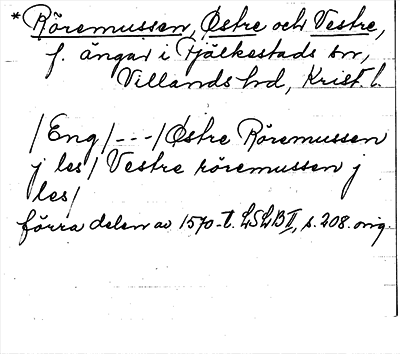 * Röremussen, Østre och Vestre,
f. ängar i Fjälkestads sn,
Villands hd, Krist. l.
/Eng/---/Østre Röremussen
j les/ Vestre röremussen j
les/
förra delen av 1570-t. LSLB II, s. 208. orig.